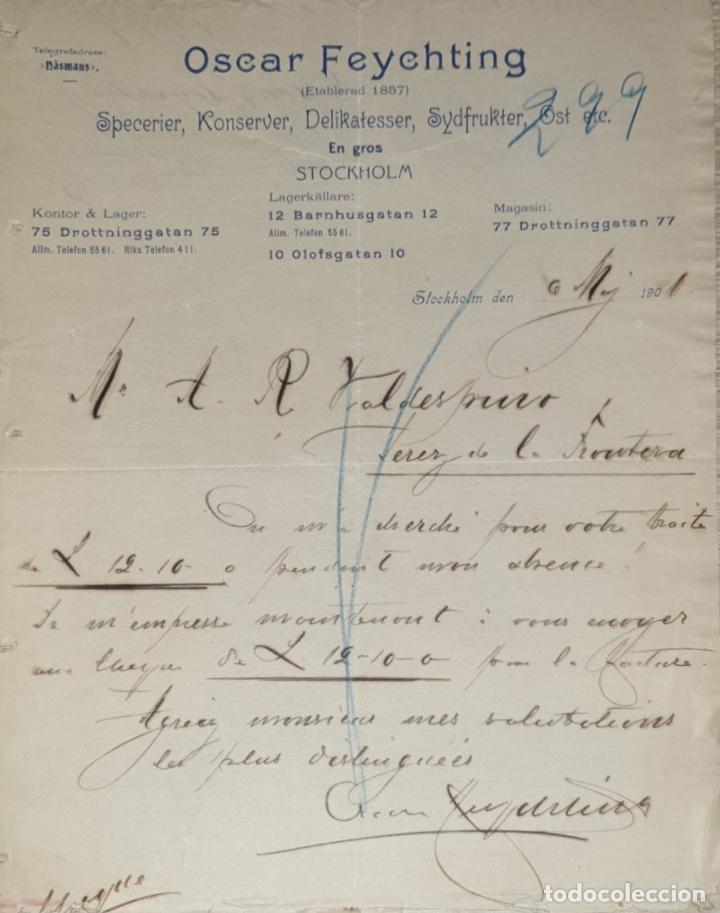 Telegrafadress:
»Näsmans«.
Oscar Feychting
(Etablerad 1857)
Specerier, Konserver, Delikatesser, Sydfrukter, Ost etc.
299
En gros
STOCKHOLM
Kontor & Lager:
75 Drottninggatan 75
Allm. Telefon 5561. Riks Telefon 411.
Lagerkällare:
12 Barnhusgatan 12
Allm. Telefon 5561.
10 Olofsgatan 10
Magasin:
77 Drottninggatan 77
Stockholm den 6 Maj 1901
Mr A. R. Valdespino,
Jerez de la Frontera
On m'a cherché pour votre traite
de £ 12-10-0 pendant mon absence!
Je m'empresse maintenant à vous envoyer
une cheque de £ 12-10-0 pour la facture.
Agréez monsieur mes salutations
les plus distinguées
Oscar Feychting
todocoleccion